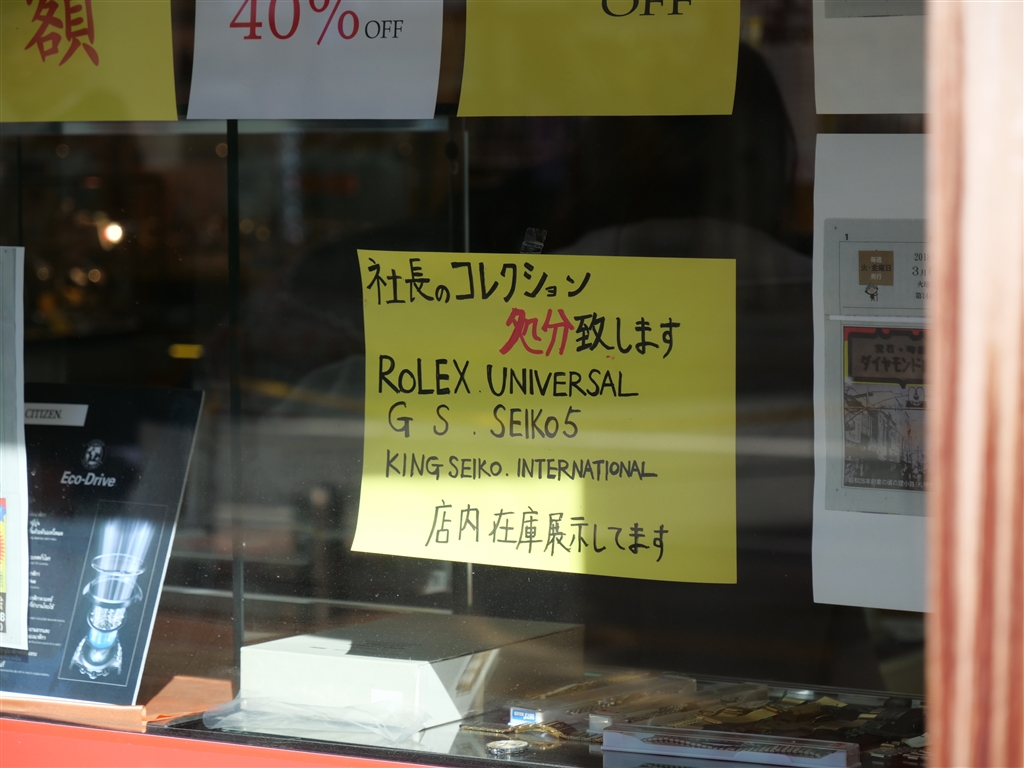 額
40% OFF
OFF
社長のコレクション
処分致します
ROLEX. UNIVERSAL
G S . SEIKO5
KING SEIKO. INTERNATIONAL
店内在庫展示してます
CITIZEN
Eco-Drive
1
毎週
火・金曜日
発行
3月
宝石・時
ダイヤモンド